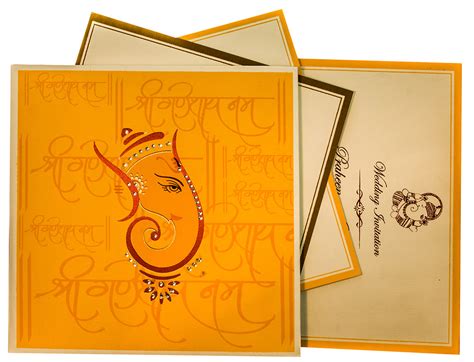 श्री गणेशाय नम
श्री गणेशाय नम
श्री गणेशाय नम
श्री गणेशाय नम
श्री गणेशाय नम
श्री गणेशाय नम
Wedding Invitation